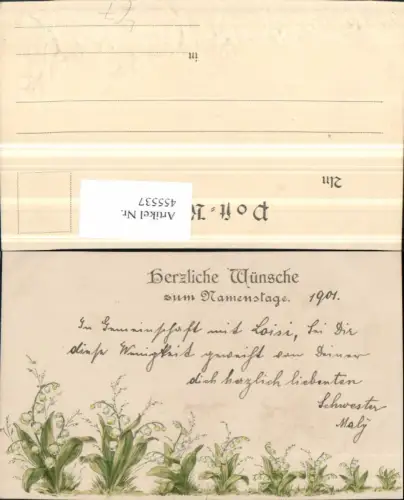 in
An
Post=K
Artikel Nr.
455537
Herzliche Wünsche
zum Namenstage. 1901.
In Gemeinschaft mit Loisi, sei Dir
diese Wenigkeit geweiht von Deiner
dich herzlich liebenden
Schwester
Maly